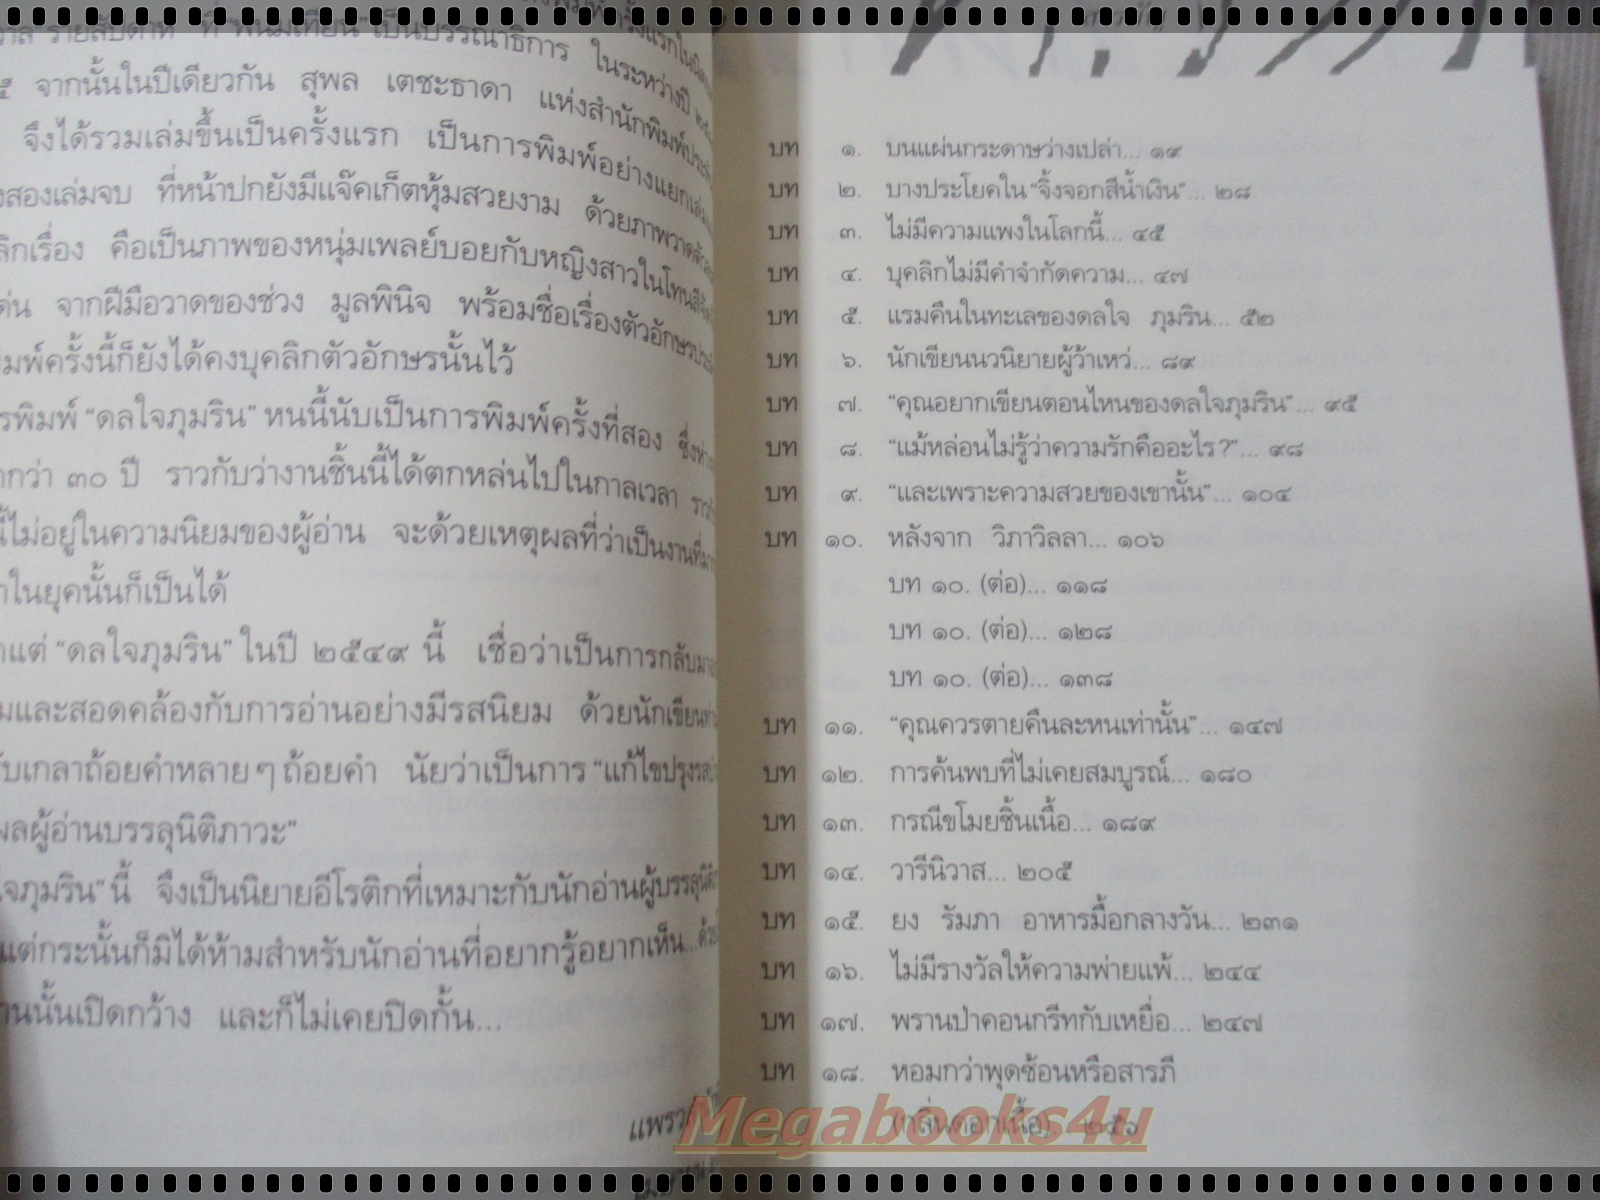 รายสัปดาห์ ที่ “พนมเทียน” เป็นบรรณาธิการ ในระหว่างปี
๕ จากนั้นในปีเดียวกัน สุพล เตชะธาดา แห่งสำนักพิมพ์ประพันธ์
จึงได้รวมเล่มขึ้นเป็นครั้งแรก เป็นการพิมพ์อย่างแยกเล่ม
สองเล่มจบ ที่หน้าปกยังมีแจ๊คเก็ตหุ้มสวยงาม ด้วยภาพวาด
เรื่อง คือเป็นภาพของหนุ่มเพลย์บอยกับหญิงสาวในโทนสี
เด่น จากฝีมือวาดของช่วง มูลพินิจ พร้อมชื่อเรื่องตัวอักษร
พิมพ์ครั้งนี้ก็ยังได้คงบุคลิกตัวอักษรนั้นไว้
พิมพ์ “ดลใจภุมริน” หนนี้นับเป็นการพิมพ์ครั้งที่สอง ซึ่ง
กว่า ๓๐ ปี ราวกับว่างานชิ้นนี้ได้ตกหล่นไปในกาลเวลา
ไม่อยู่ในความนิยมของผู้อ่าน จะด้วยเหตุผลที่ว่าเป็นงานที่
ในยุคนั้นก็เป็นได้
แต่ “ดลใจภุมริน” ในปี ๒๕๔๙ นี้ เชื่อว่าเป็นการกลับมา
และสอดคล้องกับการอ่านอย่างมีรสนิยม ด้วยนักเขียน
เกลาถ้อยคำหลายๆ ถ้อยคำ นัยว่าเป็นการ “แก้ไขปรุงรส
ผู้อ่านบรรลุนิติภาวะ”
ใจภุมริน” นี้ จึงเป็นนิยายอีโรติกที่เหมาะกับนักอ่านผู้บรรลุนิติ
แต่กระนั้นก็มิได้ห้ามสำหรับนักอ่านที่อยากรู้อยากเห็น...ด้วย
นั้นเปิดกว้าง และก็ไม่เคยปิดกั้น...
แพรว
บท ๑. บนแผ่นกระดาษว่างเปล่า... ๑๙
บท ๒. บางประโยคใน “จิ้งจอกสีน้ำเงิน”... ๒๘
บท ๓. ไม่มีความแพงในโลกนี้... ๔๕
บท ๔. บุคลิกไม่มีคำจำกัดความ... ๔๗
บท ๕. แรมคืนในทะเลของดลใจ ภุมริน... ๕๒
บท ๖. นักเขียนนวนิยายผู้ว้าเหว่... ๘๙
บท ๗. “คุณอยากเขียนตอนไหนของดลใจภุมริน”... ๙๕
บท ๘. “แม้หล่อนไม่รู้ว่าความรักคืออะไร?”... ๙๘
บท ๙. “และเพราะความสวยของเขานั้น”... ๑๐๔
บท ๑๐. หลังจาก วิภาวิลลา... ๑๐๖
บท ๑๐. (ต่อ)... ๑๑๘
บท ๑๐. (ต่อ)... ๑๒๘
บท ๑๐. (ต่อ)... ๑๓๘
บท ๑๑. “คุณควรตายคืนละหนเท่านั้น”... ๑๔๗
บท ๑๒. การค้นพบที่ไม่เคยสมบูรณ์... ๑๘๐
บท ๑๓. กรณีขโมยชิ้นเนื้อ... ๑๘๙
บท ๑๔. วารีนิวาส... ๒๐๕
บท ๑๕. ยง รัมภา อาหารมื้อกลางวัน... ๒๓๑
บท ๑๖. ไม่มีรางวัลให้ความพ่ายแพ้... ๒๔๔
บท ๑๗. พรานป่าคอนกรีทกับเหยื่อ... ๒๔๗
บท ๑๘. หอมกว่าพุดซ้อนหรือสารภี
(กลิ่นดอกเนื้อ)... ๒๕๖
Megabooks4u